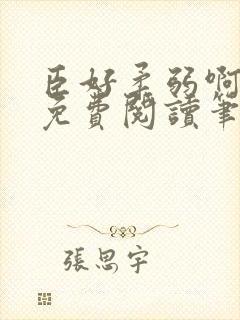 臣好柔弱啊
免費閱讀筆
張思宇